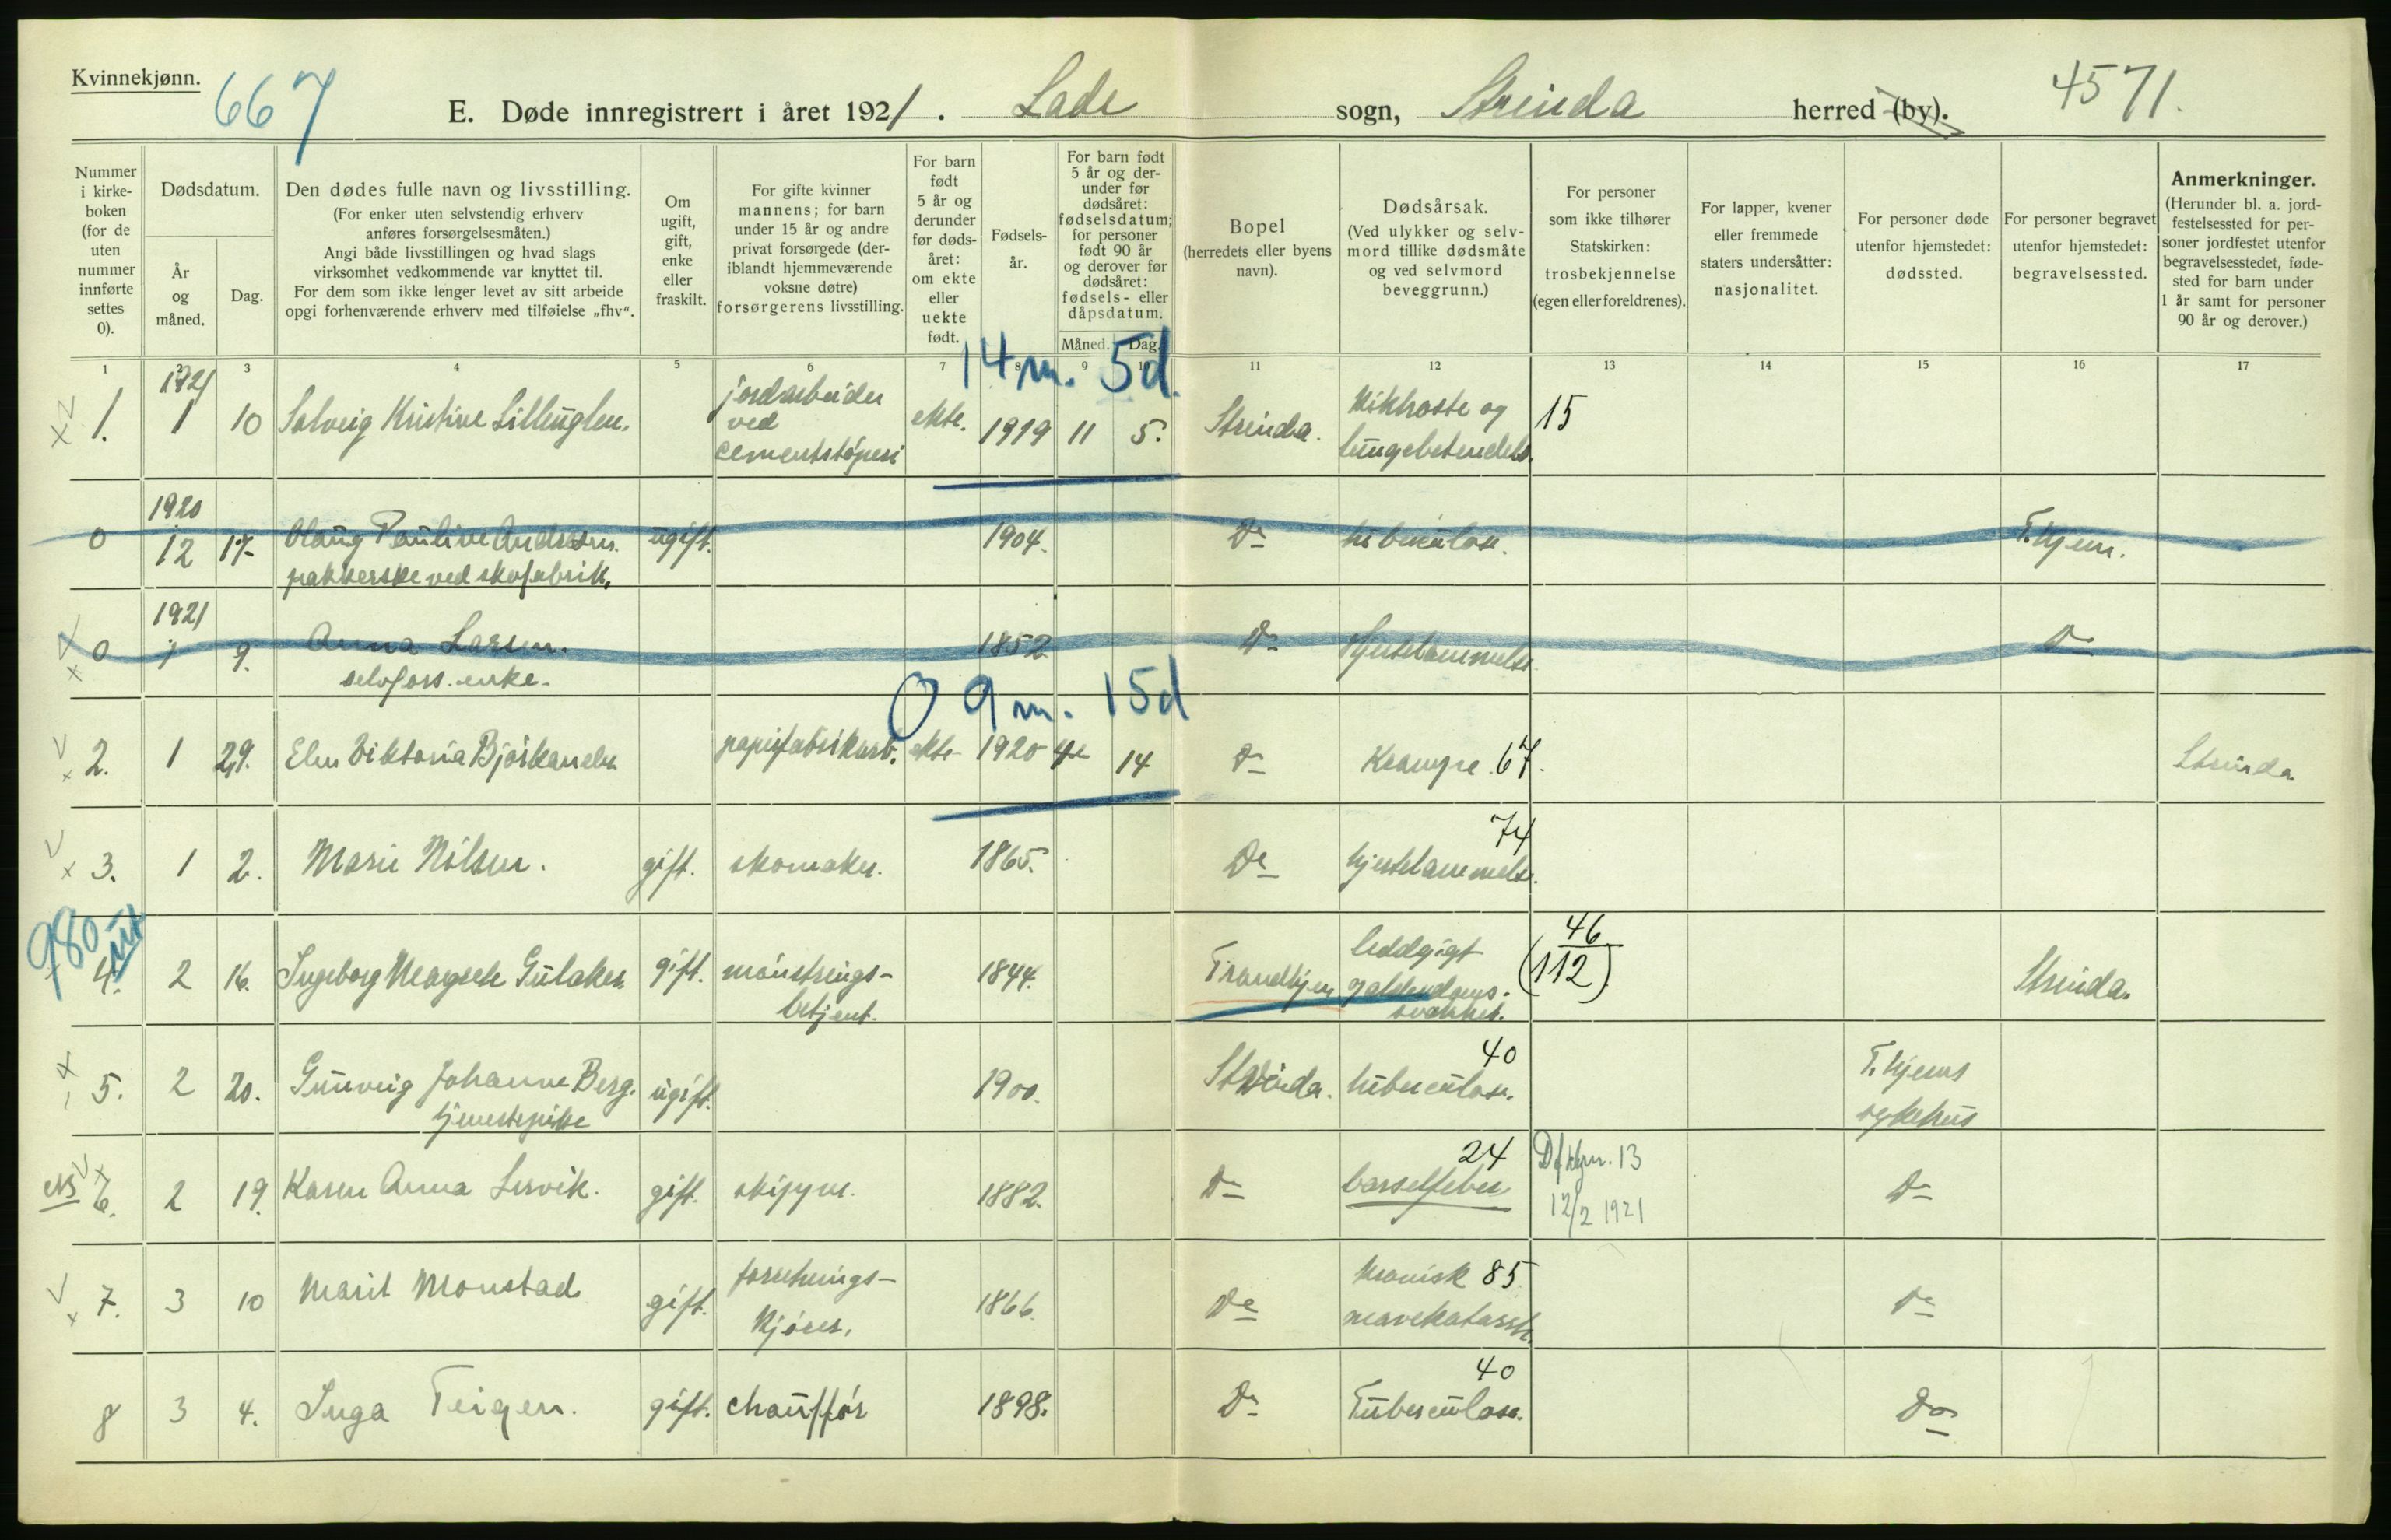 Kvinnekjønn.
667
E. Døde innregistrert i året 1921. Lade sogn, Strinda herred (by).
4571.
Nummer i kirke-boken (for de uten nummer innførte settes 0).
Dødsdatum.
År og måned.
Dag.
Den dødes fulle navn og livsstilling.
(For enker uten selvstendig erhverv anføres forsørgelsesmåten.)
Angi både livsstillingen og hvad slags virksomhet vedkommende var knyttet til.
For dem som ikke lenger levet av sitt arbeide opgi forhenværende erhverv med tilføielse „fhv“.
Om ugift, gift, enke eller fraskilt.
For gifte kvinner mannens; for barn under 15 år og andre privat forsørgede (der-iblandt hjemmeværende voksne døtre) forsørgerens livsstilling.
For barn født 5 år og derunder før døds-året: om ekte eller uekte født.
Fødsels-år.
For barn født 5 år og der-under før dødsåret: fødselsdatum; for personer født 90 år og derover før dødsåret: fødsels- eller dåpsdatum.
Måned. Dag.
Bopel (herredets eller byens navn).
Dødsårsak.
(Ved ulykker og selv-mord tillike dødsmåte og ved selvmord beveggrunn.)
For personer som ikke tilhører Statskirken: trosbekjennelse (egen eller foreldrenes).
For lapper, kvener eller fremmede staters undersåtter: nasjonalitet.
For personer døde utenfor hjemstedet: dødssted.
For personer begravet utenfor hjemstedet: begravelsessted.
Anmerkninger.
(Herunder bl. a. jord-festelsessted for per-soner jordfestet utenfor begravelsesstedet, føde-sted for barn under 1 år samt for personer 90 år og derover.)
1 2 3 4 5 6 7 8 9 10 11 12 13 14 15 16 17
14 m. 5d.
1. 1921 1 10 Solveig Kristine Lilleuglen. jordarbeider ved cementstøperi ekte. 1919 11 5. Strinda. Kikhoste og lungebetendels. 15
0 1920 12 17 Olaug Pauline Andresen. pakkerske ved skofabrik. ugift. 1904. Do tuberculose. T.hjem.
0 1921 1 9. Anna Larsen. selvfors. enke. 1852 Do Hjertelammelse Do
0 9 m. 15d
2. 1 29. Elen Viktoria Bjørkanelu papirfabrikarb. ekte 1920 4 14 Do Krampe. 67. Strinda
3. 1 2. Marie Nilsen. gift. skomaker. 1865. Do hjertelammelse. 74
980 ut
4. 2 16. Ingeborg Margrete Gulaker. gift. mønstrings-betjent. 1844. Trondhjem leddgigt alderdoms. svakhet. 46 (112) Strinda.
5. 2 20. Gunveig Johanne Berg. tjenestepike ugift. 1900. Strinda. tuberculose. 40 T.hjems sykehus
6. 2 19. Karen Anna Lervik. gift. skipper. 1882. Do barselfeber 24 13 12/2 1921 Do
7. 3 10 Marit Monstad gift. forretnings-kjører. 1866. Do Kronisk 85 mavekatarrh. Do
8 3 4. Inga Teigen. gift. chauffør 1898. Do Tuberculose. 40 Do